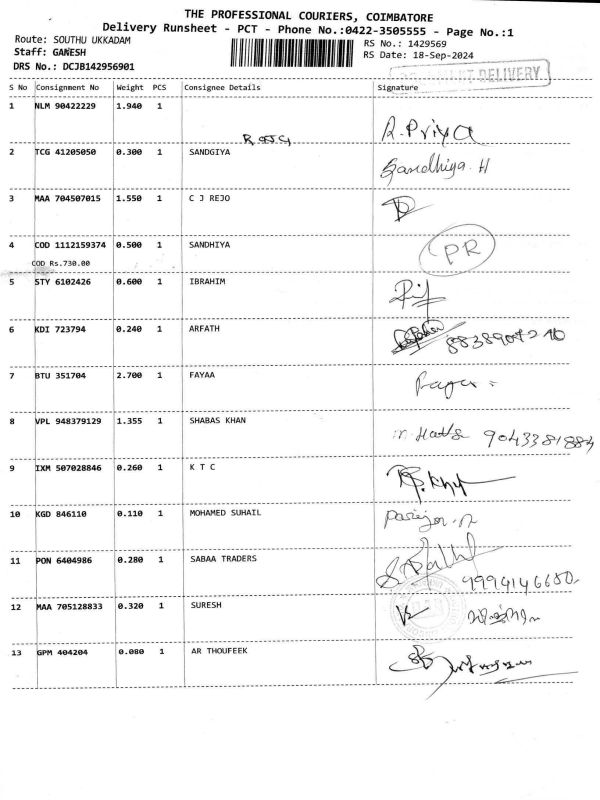 THE PROFESSIONAL COURIERS, COIMBATORE
Delivery Runsheet - PCT - Phone No.:0422-3505555 - Page No.:1
Route: SOUTHU UKKADAM
RS No.: 1429569
Staff: GANESH
RS Date: 18-Sep-2024
DRS No.: DCJB142956901
DELIVERY
S No Consignment No Weight PCS Consignee Details Signature
1 NLM 90422229 1.940 1
R.Priya
2 TCG 41205050 0.300 1 SANDGIYA
Sandhiya.H
3 MAA 704507015 1.550 1 C J REJO
4 COD 1112159374 0.500 1 SANDHIYA
PR
COD Rs.730.00
5 STY 6102426 0.600 1 IBRAHIM
6 KDI 723794 0.240 1 ARFATH
7 BTU 351704 2.700 1 FAYAA
8 VPL 948379129 1.355 1 SHABAS KHAN
9043381884
9 IXM 507028846 0.260 1 K T C
10 KGD 846110 0.110 1 MOHAMED SUHAIL
11 PON 6404986 0.280 1 SABAA TRADERS
9994146680
12 MAA 705128833 0.320 1 SURESH
13 GPM 404204 0.080 1 AR THOUFEEK